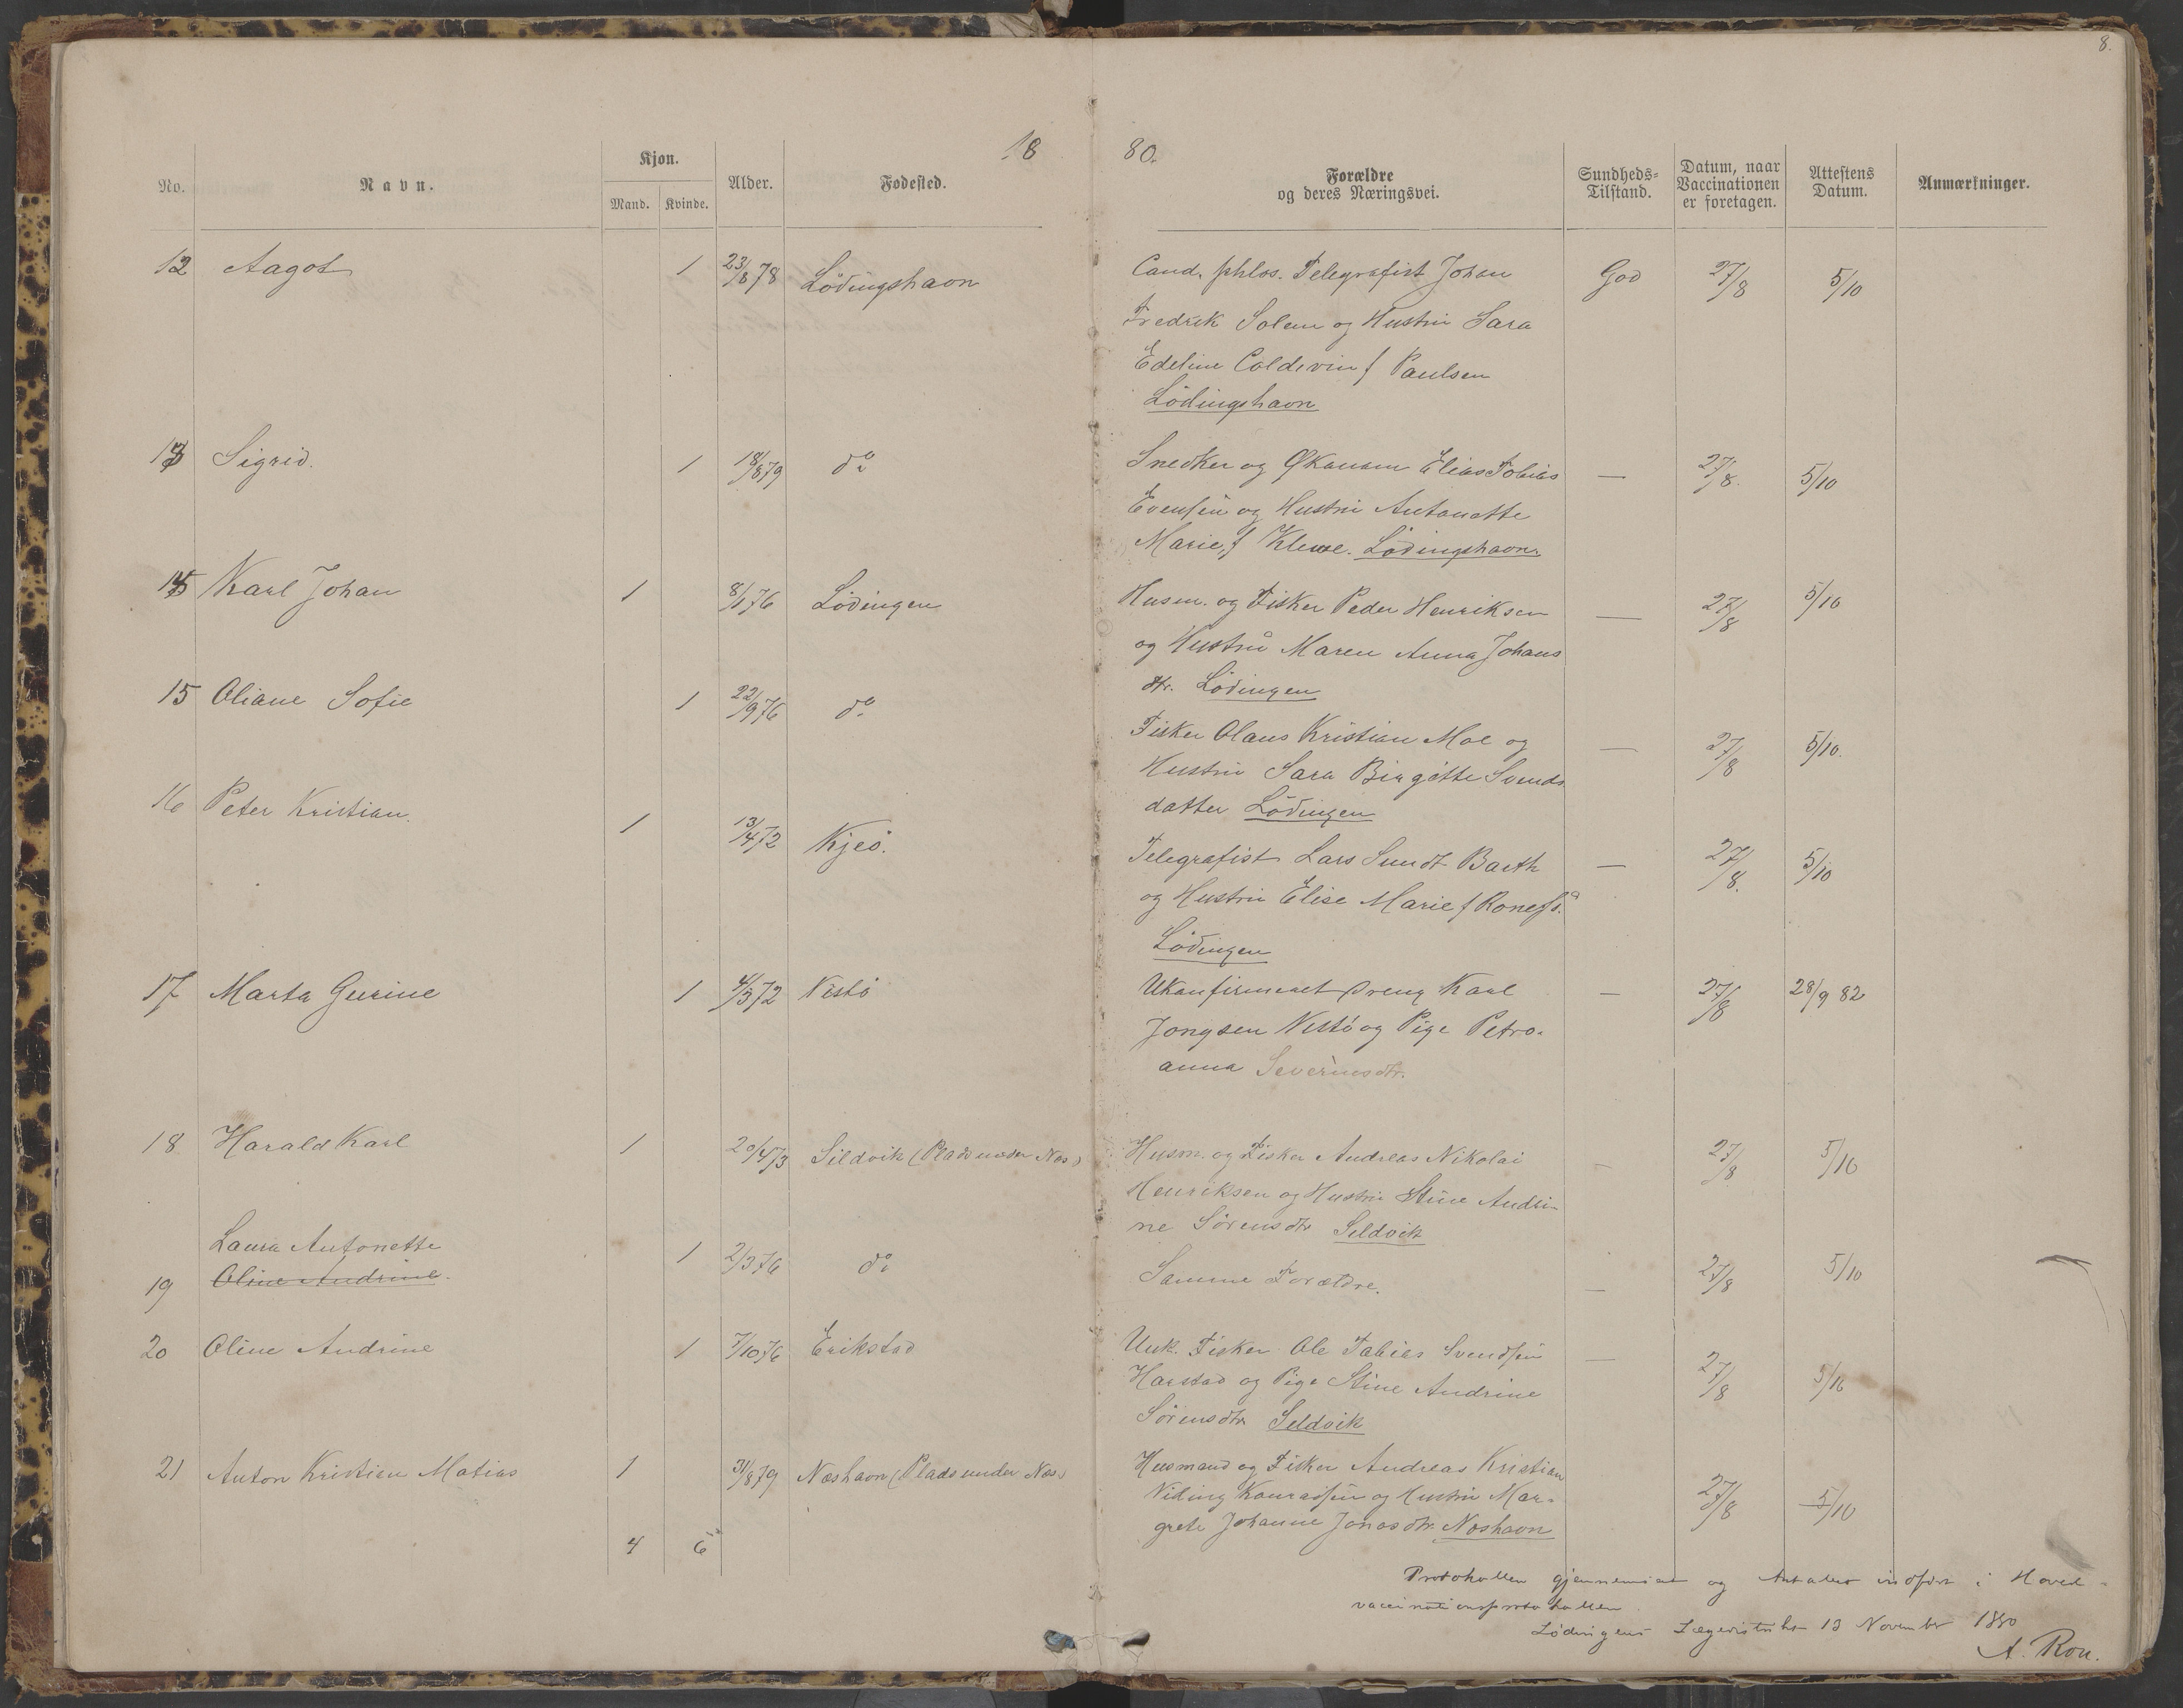 8.
1880.
No.
Navn.
Kjøn.
Mand. Kvinde.
Alder.
Fødested.
Forældre
og deres Næringsvei.
Sundheds-
Tilstand.
Datum, naar
Vaccinationen
er foretagen.
Attestens
Datum.
Anmærkninger.
12 Aagot 1 23/8 78 Lödingshavn Cand. philos. Telegrafist Johan God 27/8 5/10
Fredrik Solem og Hustru Sara
Edeline Coldevin f Paulsen
Lödingshavn
13 Sigrid. 1 18/8 79 do Snedker og Økonom Elias Tobias — 27/8. 5/10
Evensen og Hustru Antonette
Marie f Klewe. Lödingshavn.
14 Karl Johan 1 8/1 76 Lödingen Husm. og Fisker Peder Henriksen — 27/8 5/10
og Hustru Maren Anna Johans
dtr. Lödingen
15 Oliane Sofie 1 22/9 76 do Fisker Olaus Kristian Moe og — 27/8 5/10.
Hustru Sara Birgitte Svends
datter Lödingen
16 Peter Kristian. 1 13/4 72 Kjeö. Telegrafist Lars Sundt Barth — 27/8. 5/10
og Hustru Elise Marie f
Lödingen
17 Marta Gurine 1 4/3 72 Nestö Ukonfirmeret Dreng Karl — 27/8 28/9 82
Jongsen Nestö og Pige Petro-
anna Severinsdtr.
18. Harald Karl 1 20/4 73 Sildvik (Plads under Næs) Husm. og Fisker Andreas Nikolai — 27/8 5/10
Henriksen og Hustru Stine Andri-
ne Sörensdtr Sildvik
Laura Antonette 1 2/3 76 do Samme Forældre. — 27/8 5/10
19 Oline Andrine.
20 Oline Andrine 1 7/10 76 Erikstad Unk. Fisker Ole Tobias Svendsen — 27/8 5/10
Harstad og Pige Stine Andrine
Sörensdtr Sildvik
21 Anton Kristian Matias 1 31/8 79 Næshavn (Plads under Næs) Husmand og Fisker Andreas Kristian 27/8 5/10
Viding Konradsen og Hustru Mar-
grete Johanne Jonasdtr. Næshavn
4 6
Protokollen gjennemseet og Antallet indført i Hoved-
vaccinationsprotokollen
Lødingens Lægedistrikt 13 November 1880
A. Rou.